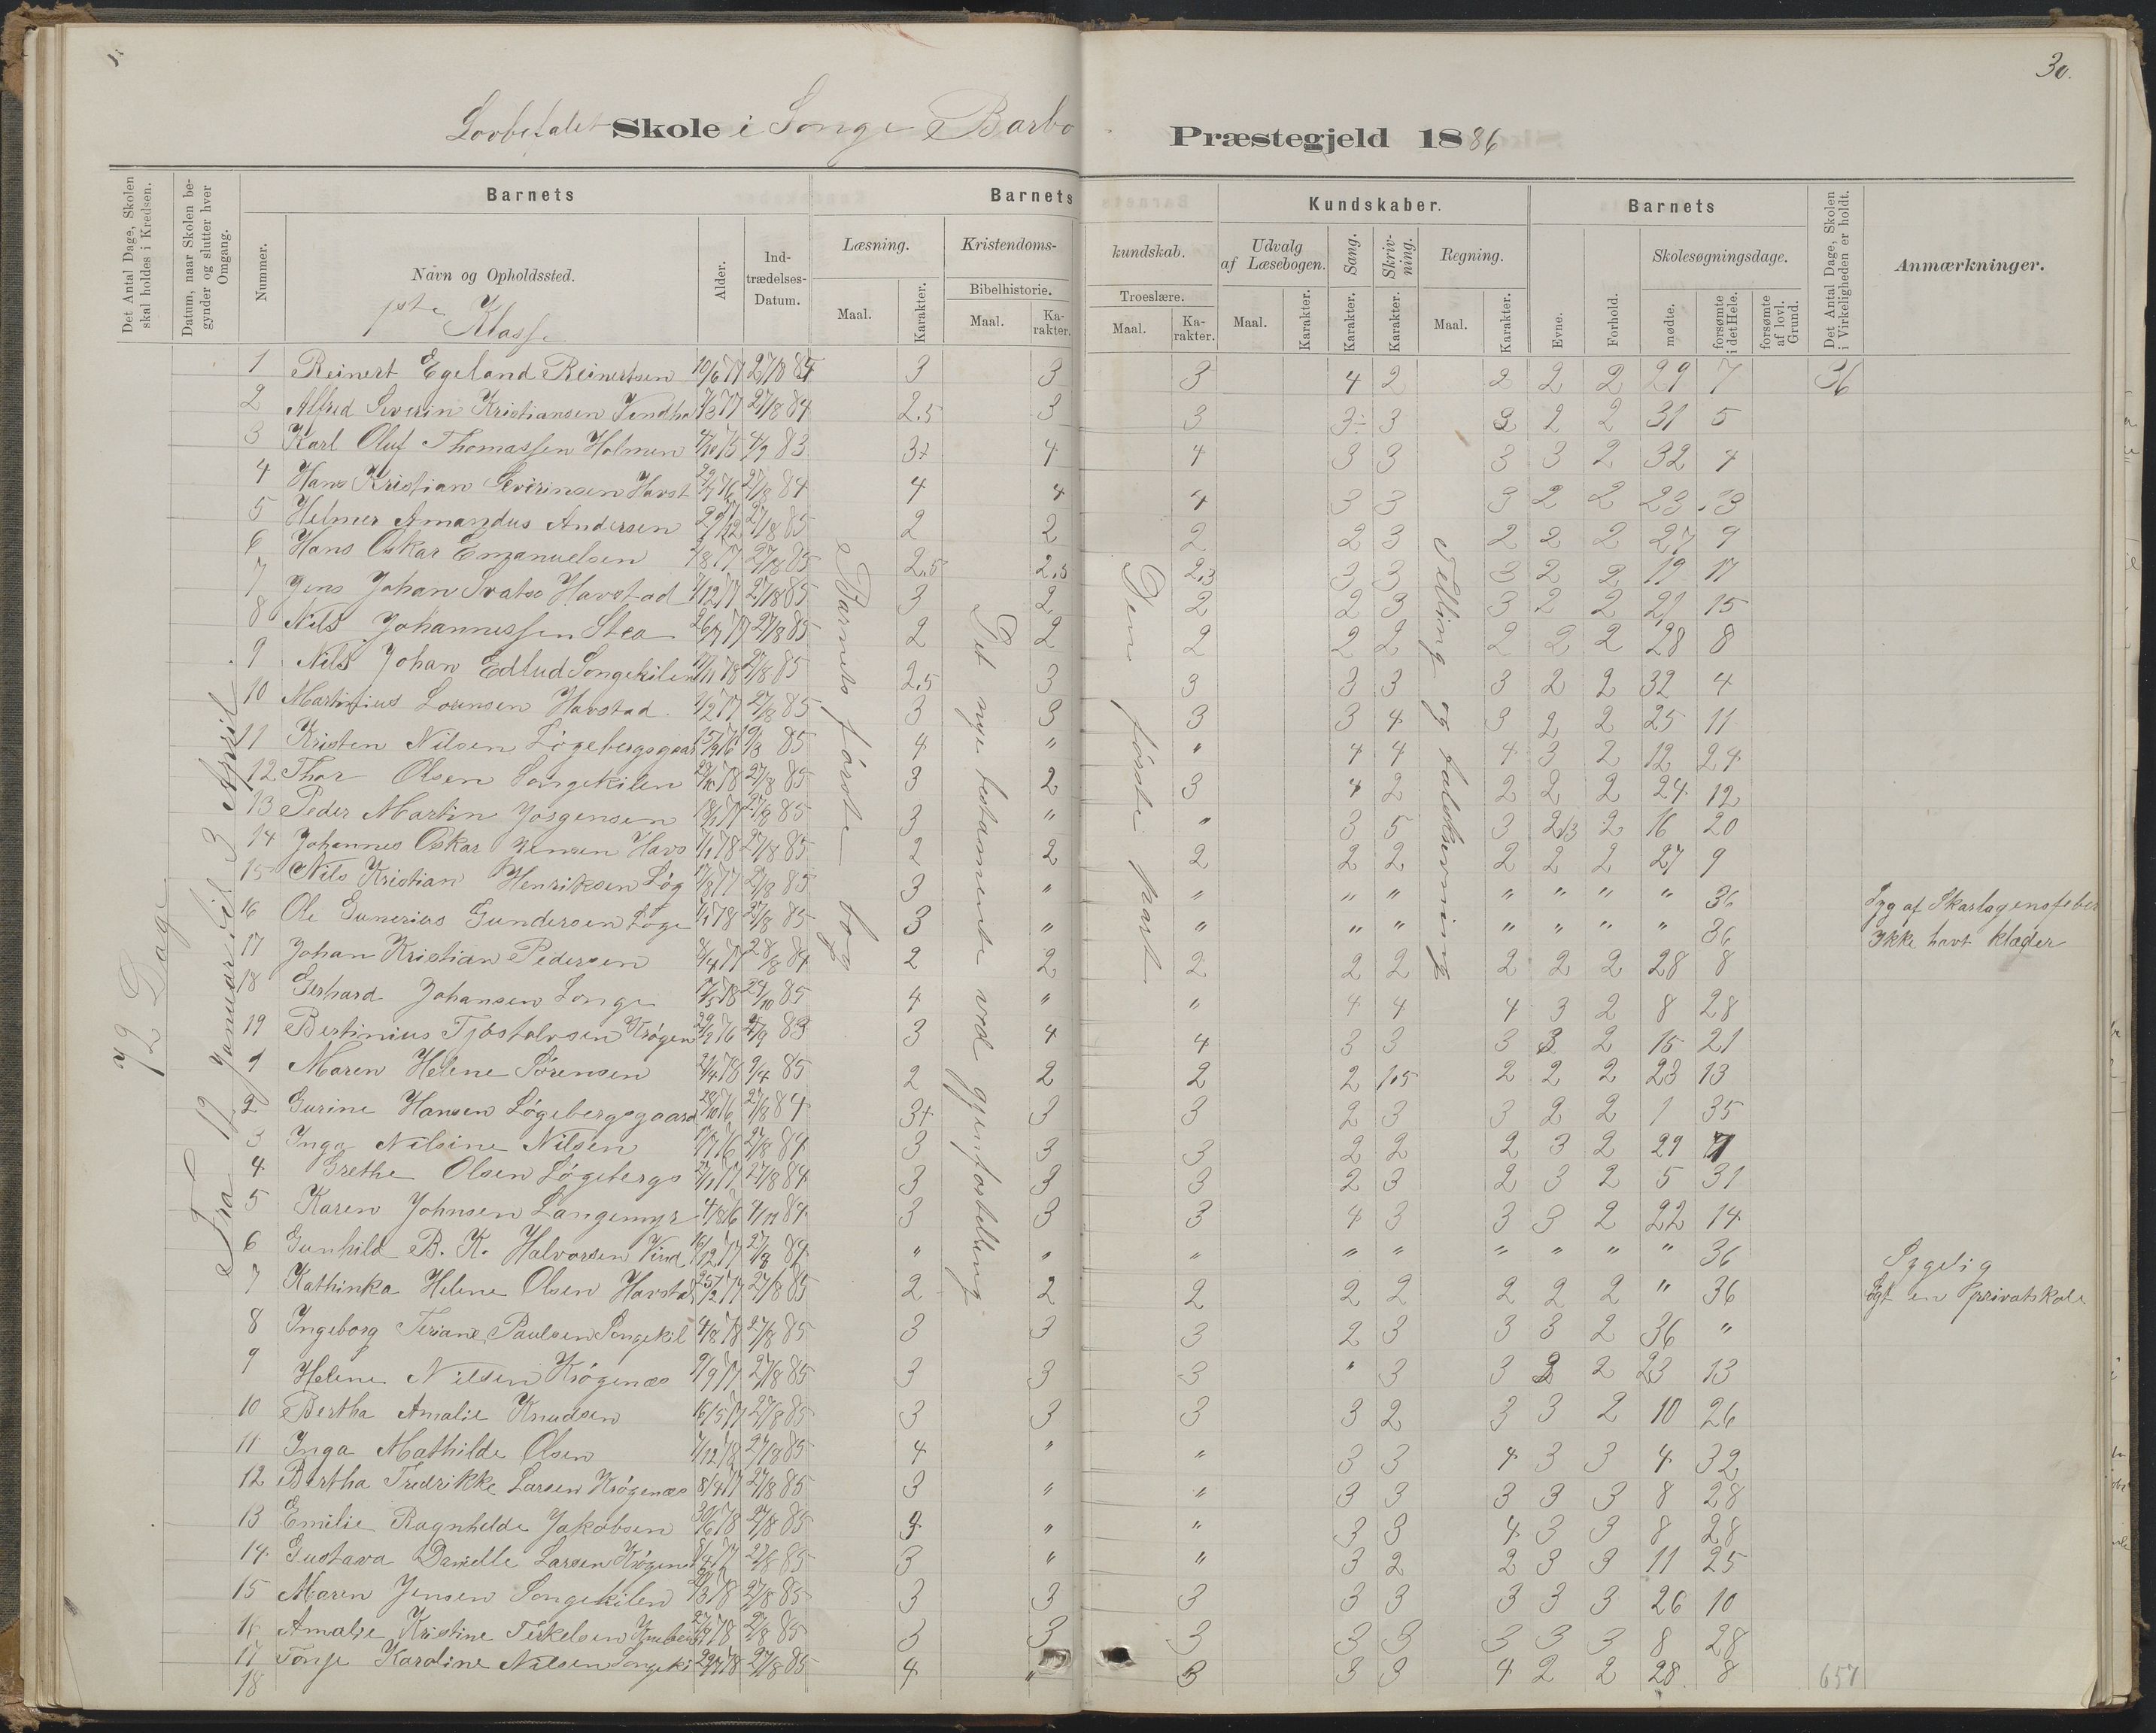 30.
Lovbefalet Skole i Songe Barbo Præstegjeld 1886
Det Antal Dage, Skolen skal holdes i Kredsen.
Datum, naar Skolen begynder og slutter hver Omgang.
Barnets
Nummer.
Navn og Opholdssted.
1ste Klasse
Alder.
Indtrædelses-Datum.
Barnets Kundskaber.
Læsning.
Maal.
Karakter.
Kristendomskundskab.
Bibelhistorie.
Maal.
Karakter.
Troeslære.
Maal.
Karakter.
Udvalg af Læsebogen.
Maal.
Karakter.
Sang.
Karakter.
Skrivning.
Karakter.
Regning.
Maal.
Karakter.
Barnets
Evne.
Forhold.
Skolesøgningsdage.
mødte.
forsømte i det Hele.
forsømte af lovl. Grund.
Det Antal Dage, Skolen i Virkeligheden er holdt.
Anmærkninger.
72 Dage
Fra 12 Januar til 3 April
Barnets første bog
Det nye testamente ved gjenfortelling
Den første part
Telling og talskrivning
1 Reinert Egeland Reinertsen 10/6 77 27/8 84 3 3 3 4 2 2 2 2 29 7 36
2 Alfred Severin Kristiansen 27/8 84 2.5 3 3 3÷ 3 3 2 2 31 5
3 Karl Oluf Thomassen Holmen 4/10 75 4/9 83 3+ 4 4 3 3 3 3 2 32 4
4 Hans Kristian Severinsen Havst 27/8 84 4 4 4 3 3 3 2 2 23 13
5 Helmer Amandus Andersen 27/8 85 2 2 2 2 3 2 2 2 27 9
6 Hans Oskar Emanuelsen 27/8 85 2.5 2.5 2.3 3 3 3 2 2 19 17
7 Jens Johan Havstad 27/8 85 3 2 2 2 3 3 2 2 21 15
8 Nils Johannessen Stea 26/7 77 27/8 85 2 2 2 2 2 2 2 2 28 8
9 Nils Johan Edlud Songekilen 27/8 85 2.5 3 3 3 3 3 2 2 32 4
10 Martinius Lorensen Havstad 27/8 85 3 3 3 3 4 3 2 2 25 11
11 Kristen Nilsen Løgebergsgaar 85 4 " " 4 4 4 3 2 12 24
12 Thor Olsen Songekilen 27/8 85 3 2 3 4 2 2 2 2 24 12
13 Peder Martin Jørgensen 27/8 85 3 " " 3 5 3 2.3 2 16 20
14 Johannes Oskar Jensen Havs 27/8 85 2 2 2 2 2 2 2 2 27 9
15 Nils Kristian Henriksen Løg 27/8 85 3 " " " " " " " " 36 Syg af Skarlagensfeber
16 Ole Gunerius Gundersen Løge 27/8 85 3 " " " " " " " " 36 Ikke havt klæder
17 Johan Kristian Pedersen 28/8 84 2 2 2 2 2 2 2 2 28 8
18 Gerhard Johansen Songe 85 4 " " 4 4 4 3 2 8 28
19 Bertinius Tjøstolvsen Krøgen 4/9 83 3 4 4 3 3 3 3 2 15 21
1 Maren Helene Sørensen 9/4 85 2 2 2 2 1.5 2 2 2 23 13
2 Gurine Hansen Løgebergsgaard 27/8 84 3+ 3 3 2 3 3 2 2 1 35
3 Inga Nilsine Nilsen 27/8 84 3 3 3 2 2 2 3 2 29 7
4 Grethe Olsen Løgebergs 27/8 84 3 3 3 2 3 2 3 2 5 31
5 Karen Johnsen Langemyr 84 3 3 3 4 3 3 3 2 22 14
6 Gunhild B. K. Halvorsen Vind 84 " " " " " " " " " 36 Sygelig
7 Kathinka Helene Olsen Havstad 27/8 85 2 2 2 2 2 2 2 2 " 36 Søgt en privatskole
8 Ingeborg Paulsen Songekil 27/8 85 3 3 3 2 3 3 3 2 36 "
9 Helene Nilsen Krøgenæs 9/9 77 27/8 85 3 3 3 " 3 3 2 2 23 13
10 Bertha Amalie Knudsen 16/5 77 27/8 85 3 3 3 3 2 3 3 2 10 26
11 Inga Mathilde Olsen 27/8 85 4 " " 3 3 4 3 3 4 32
12 Bertha Fredrikke Larsen Krøgenæs 8/4 77 27/8 85 3 " " 3 3 3 3 3 8 28
13 Emilie Ragnhilde Jakobsen 30/6 78 27/8 85 4 " " 3 3 4 3 3 8 28
14 Gustava Danielle Larsen Krøgenæs 27/8 85 3 " " 3 2 2 3 3 11 25
15 Maren Jensen Songekilen 27/8 85 3 3 3 3 3 3 3 3 26 10
16 Amalie Kristine Terkelsen 27/8 85 3 3 3 3 3 3 3 3 8 28
17 Tonje Karoline Nilsen Songeki 27/8 85 4 " 3 3 3 4 2 2 28 8 657
18